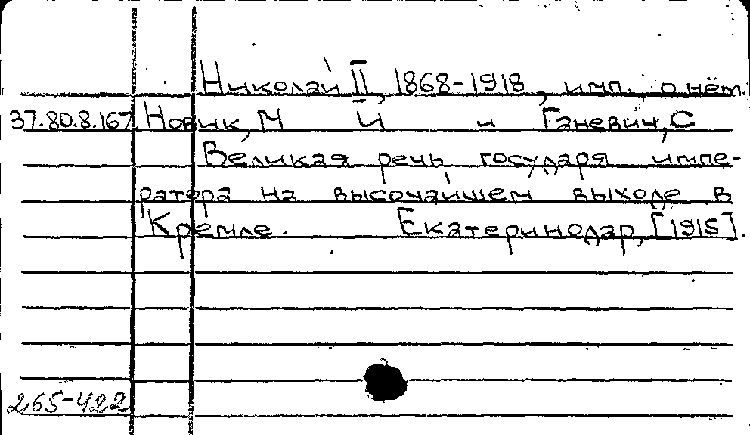 Николай II, 1868-1918, имп. о нём.
37.80.8.167 Новик, М Й и Ганевич, С
Великая речь государя импе-
ратора на высочайшем выходе в
Кремле. Екатеринодар, [1915].
265-422